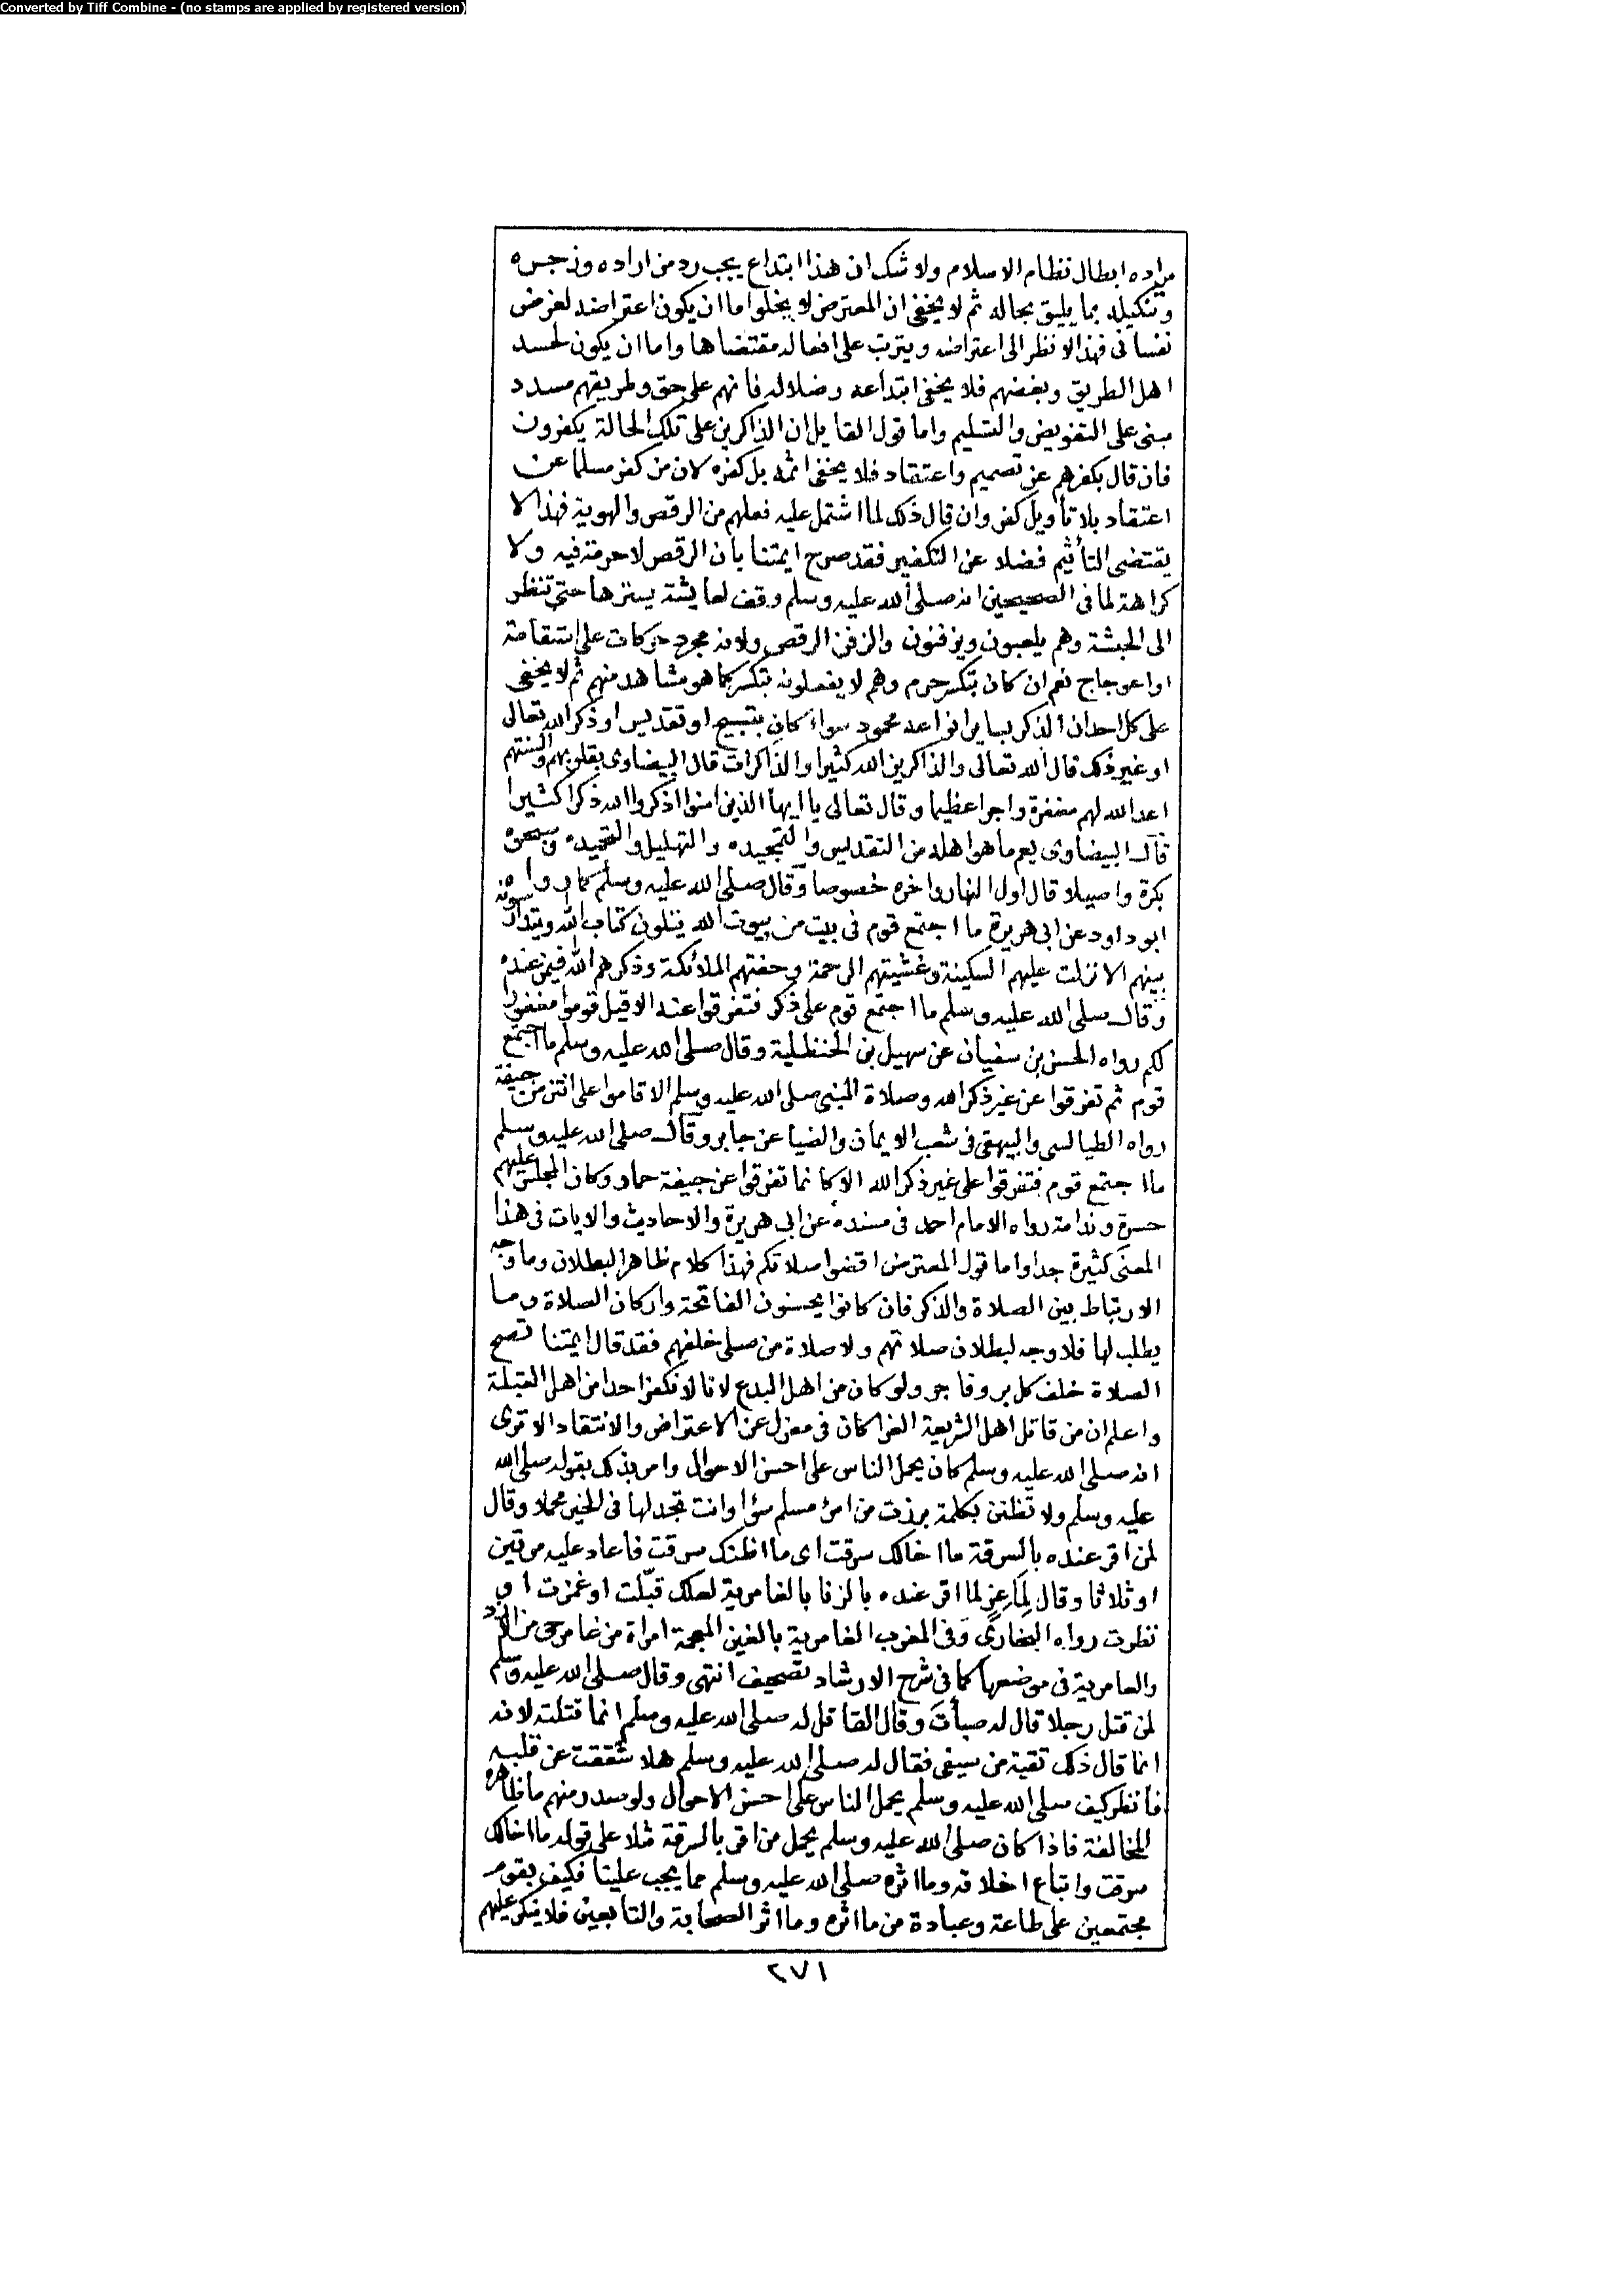 Converted by Tiff Combine - (no stamps are applied by registered version)
مراده ابطال نظام الاسلام ولا شك ان هذا ابتداع يجب رد من اراده وزجره
وتنكيله بما يليق بحاله ثم لا يخفى ان المعترض لا يخلوا ما ان يكون اعتراضه لغرض
نفسانى فهذا لا نظر الى اعتراضه ويترتب على افعاله مقتضاها واما ان يكون لحسد
اهل الطريق وبغضهم فلا يخفى ابتداعه وضلاله فانهم على حق وطريقهم مسدد
مبنى على التفويض والتسليم واما قول القايل ان الذاكرين على تلك الحالة يكفرون
فان قال بكفرهم عن تصميم واعتقاد فلا يخفى اثمه بل كفره لان من كفر مسلما عن
اعتقاد بلا تأويل كفر وان قال ذلك لما اشتمل عليه فعلهم من الرقص والهوية فهذا لا
يقتضى التأثيم فضلا عن التكفير فقد صرح ايمتنا بان الرقص لا حرمة فيه ولا
كراهة لما فى الصحيحين انه صلى الله عليه وسلم وقف لعايشة يسترها حتى تنظر
الى الحبشة وهم يلعبون ويزفنون والزفن الرقص ولانه مجرد حركات على استقامة
او اعوجاج نعم ان كان بتكسر حرم وهم لا يفعلونه بتكسر كما هو مشاهد منهم ثم لا يخفى
على كل احد ان الذكر بساير انواعه محمود سواء كان بتسبيح او تقديس او ذكر الله تعالى
او غير ذلك قال الله تعالى والذاكرين الله كثيرا والذاكرات قال البيضاوى بقلوبهم والسنتهم
اعد الله لهم مغفرة واجرا عظيما وقال تعالى يا ايها الذين امنوا اذكروا الله ذكرا كثيرا
قال البيضاوى يعم ما هو اهله من التقديس والتمجيد والتهليل والتحميد وسبحوه
بكرة واصيلا قال اول النهار واخره خصوصا وقال صلى الله عليه وسلم كما رواه
ابو داود عن ابى هريرة ما اجتمع قوم فى بيت من بيوت الله يتلون كتاب الله ويتدارسونه
بينهم الا نزلت عليهم السكينة وغشيتهم الرحمة وحفتهم الملائكة وذكرهم الله فيمن عنده
وقال صلى الله عليه وسلم ما اجتمع قوم على ذكر فتفرقوا عنه الا قيل قوموا مغفورا
لكم رواه الحسن بن سفيان عن سهيل بن الحنظلية وقال صلى الله عليه وسلم ما اجتمع
قوم ثم تفرقوا عن غير ذكر الله وصلاة النبى صلى الله عليه وسلم الا قاموا على انتن من جيفة
رواه الطيالسى والبيهقى فى شعب الايمان والضيا عن جابر وقال صلى الله عليه وسلم
ما اجتمع قوم فتفرقوا على غير ذكر الله الا كانما تفرقوا عن جيفة حمار وكان المجلس عليهم
حسرة وندامة رواه الامام احمد فى مسنده عن ابى هريرة والاحاديث والايات فى هذا
المعنى كثيرة جدا واما قول المعترض اقضوا صلاتكم فهذا كلام ظاهر البطلان وما وجه
الارتباط بين الصلاة والذكر فان كانوا يحسنون الفاتحة واركان الصلاة وما
يطلب لها فلا وجه لبطلان صلاتهم ولا صلاة من صلى خلفهم فقد قال ايمتنا تصح
الصلاة خلف كل بر وفاجر ولو كان من اهل البدع لانا لا نكفر احدا من اهل القبلة
واعلم ان من قاتل اهل الشريعة الغرا كان فى معزل عن الاعتراض والانتقاد الا ترى
انه صلى الله عليه وسلم كان يحمل الناس على احسن الاحوال وامر بذلك بقوله صلى الله
عليه وسلم ولا تظنن بكلمة برزت من امرئ مسلم سؤا وانت تجد لها فى الخير محملا وقال
لمن اقر عنده بالسرقة ما اخالك سرقت اى ما اظنك سرقت فاعاد عليه مرتين
او ثلاثا وقال لِمَاعِزٍ لما اقر عنده بالزنا بالغامرية لعلك قبّلت او غمزت او
نظرت رواه البخارى وفى المغرب الغامرية بالغين المعجمة امراة من غامر حى من الازد
والعامرية فى موضعها كما فى شرح الارشاد تصحيف انتهى وقال صلى الله عليه وسلم
لمن قتل رجلا قال له صبأتَ وقال القاتل له صلى الله عليه وسلم انما قتلته لانه
انما قال ذلك تقية من سيفى فقال له صلى الله عليه وسلم هلا شققت عن قلبه
فانظر كيف صلى الله عليه وسلم يحمل الناس على احسن الاحوال ولو صدر منهم ما ظاهره
المخالفة فاذا كان صلى الله عليه وسلم يحمل من اقر بالسرقة مثلا على قوله ما اخالك
سرقت واتباع اخلاقه وما اثره صلى الله عليه وسلم مما يجب علينا فكيف بقوم
مجتمعين على طاعة وعبادة من ما اثره وما اثر الصحابة والتابعين فلا ينكر عليهم
٢٧١